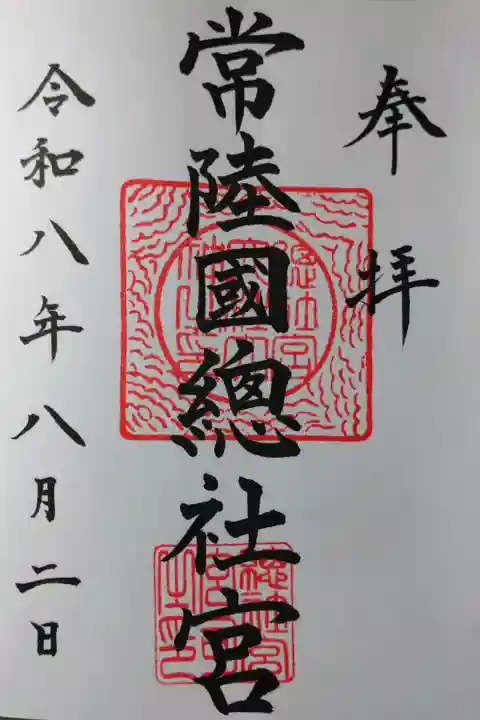 奉拝
常陸國總社宮
令和八年八月二日